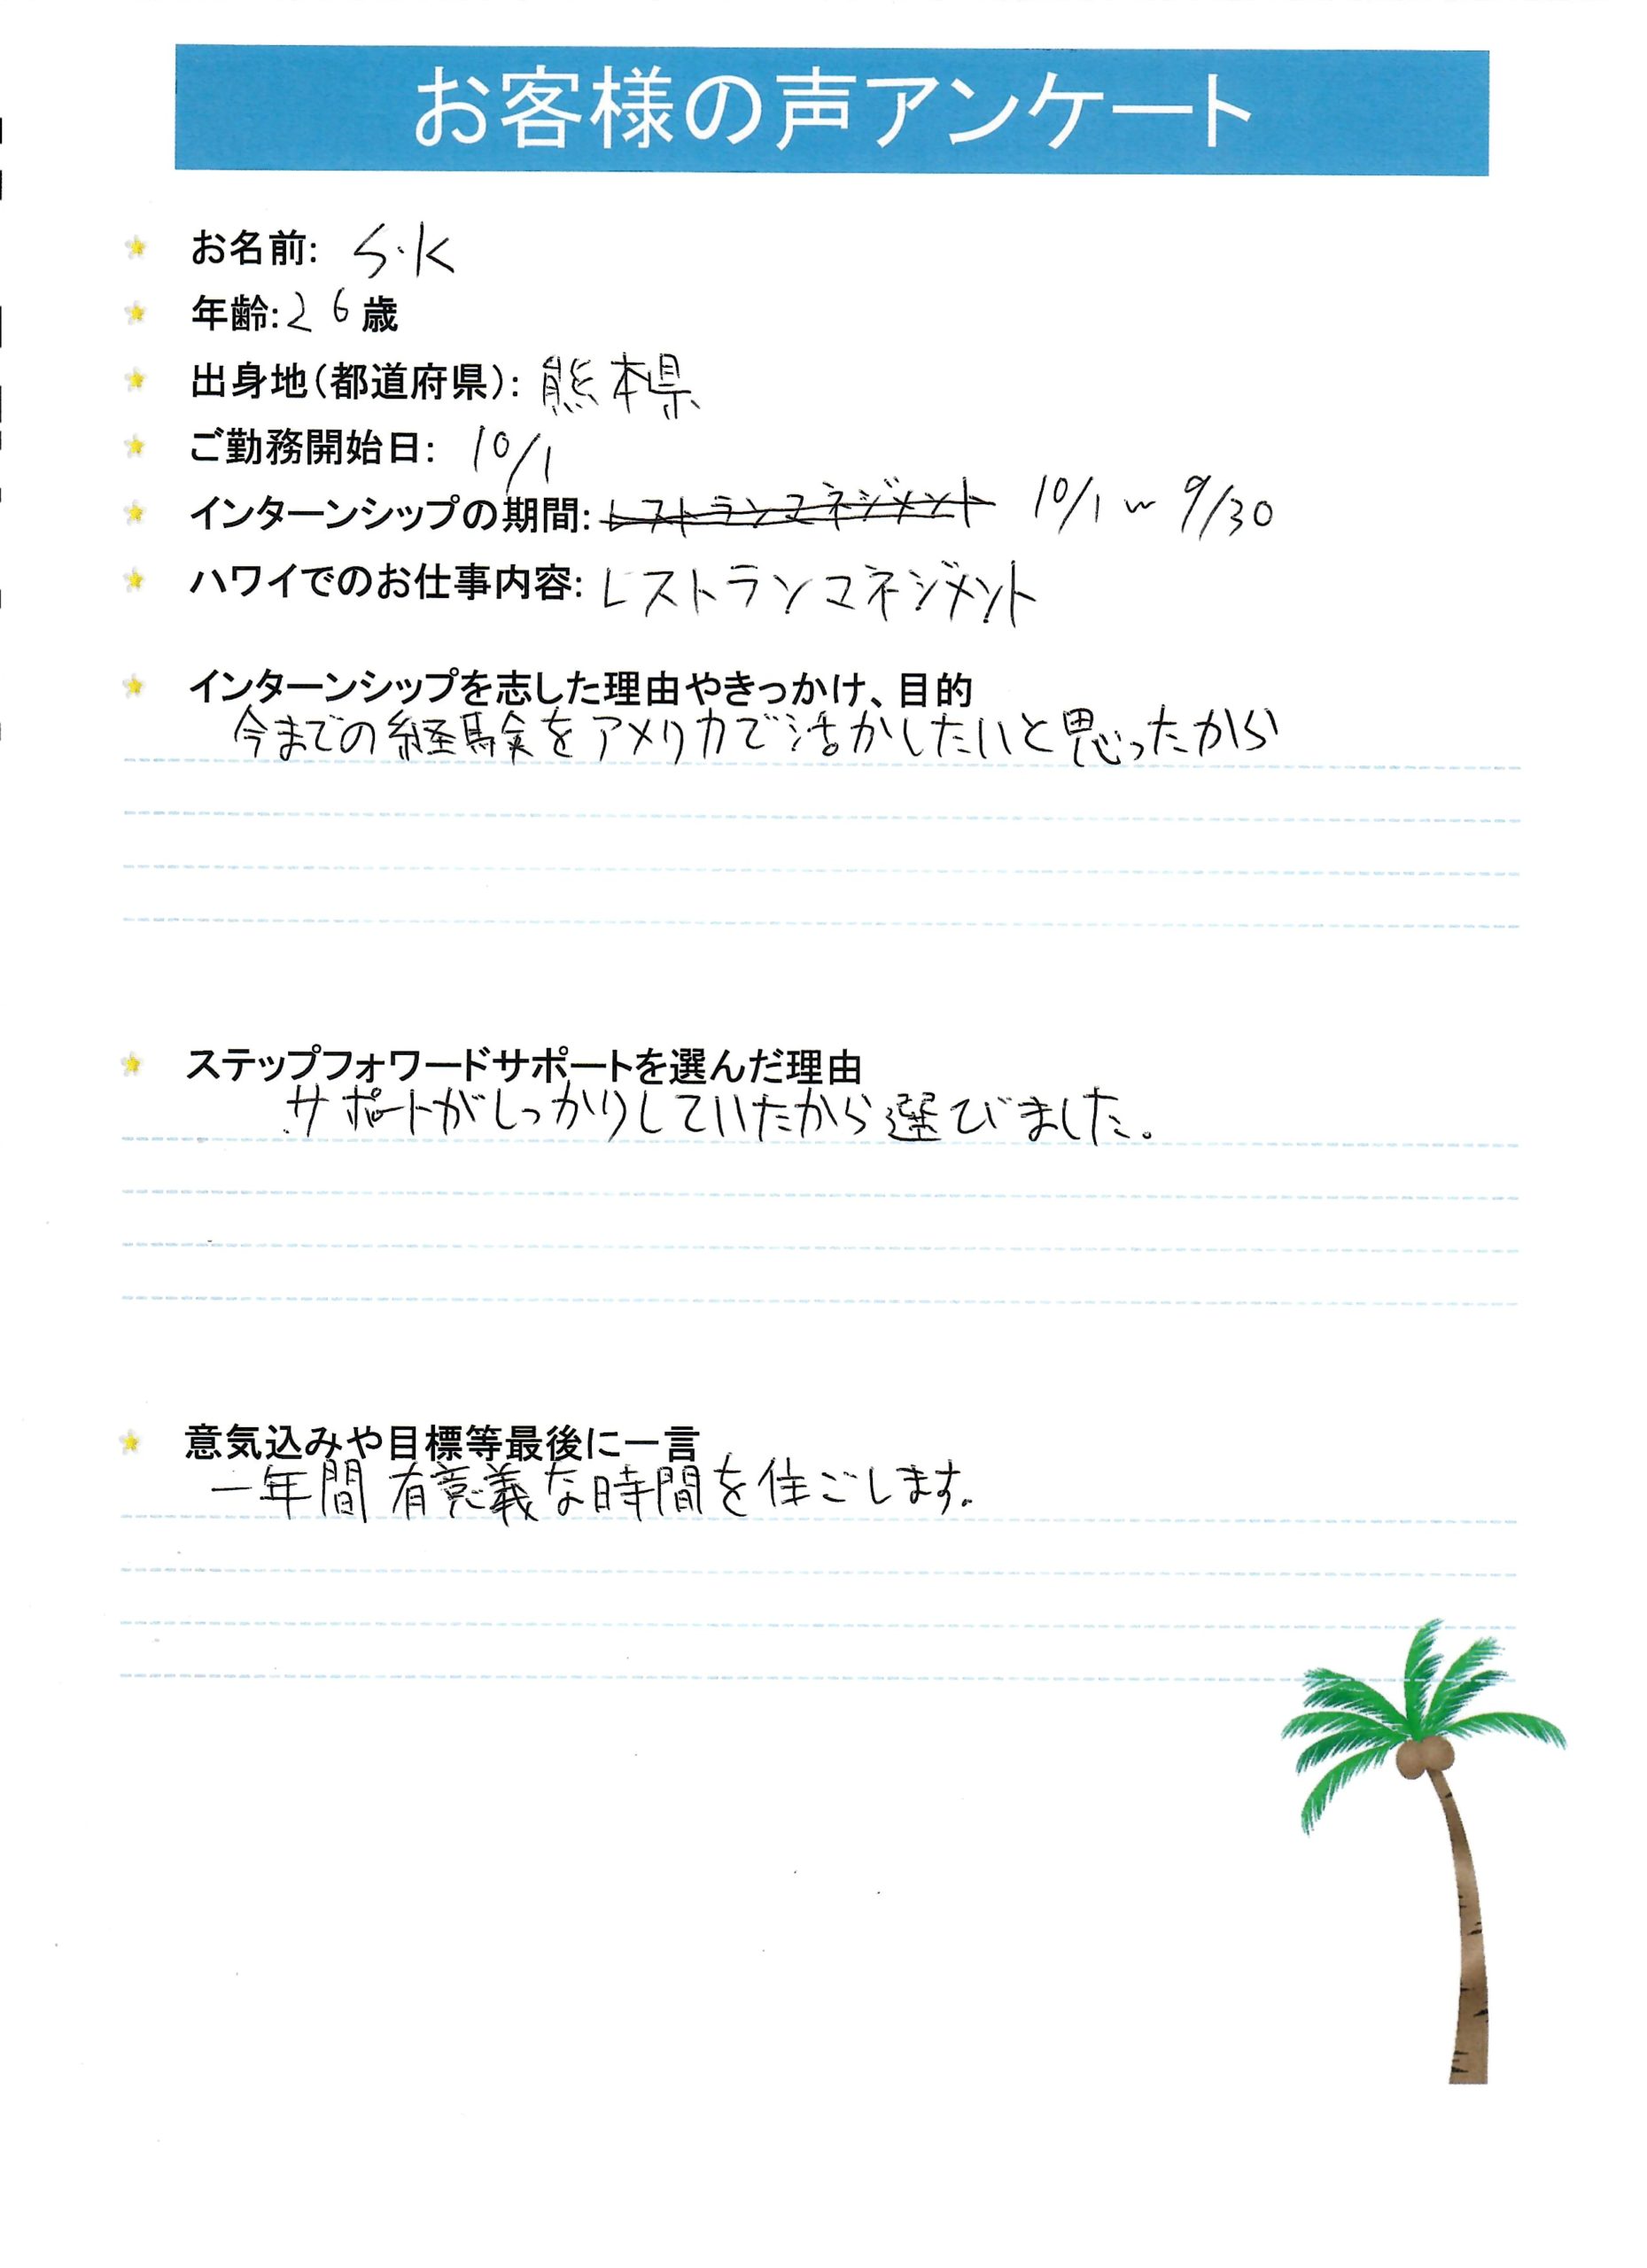 お客様の声アンケート
お名前: S.K
年齢:26歳
出身地(都道府県): 熊本県
ご勤務開始日: 10/1
インターンシップの期間: レストランマネジメント 10/1～9/30
ハワイでのお仕事内容: レストランマネジメント
インターンシップを志した理由やきっかけ、目的
今までの経験をアメリカで活かしたいと思ったから
ステップフォワードサポートを選んだ理由
サポートがしっかりしていたから選びました。
意気込みや目標等最後に一言
一年間有意義な時間を住ごします。